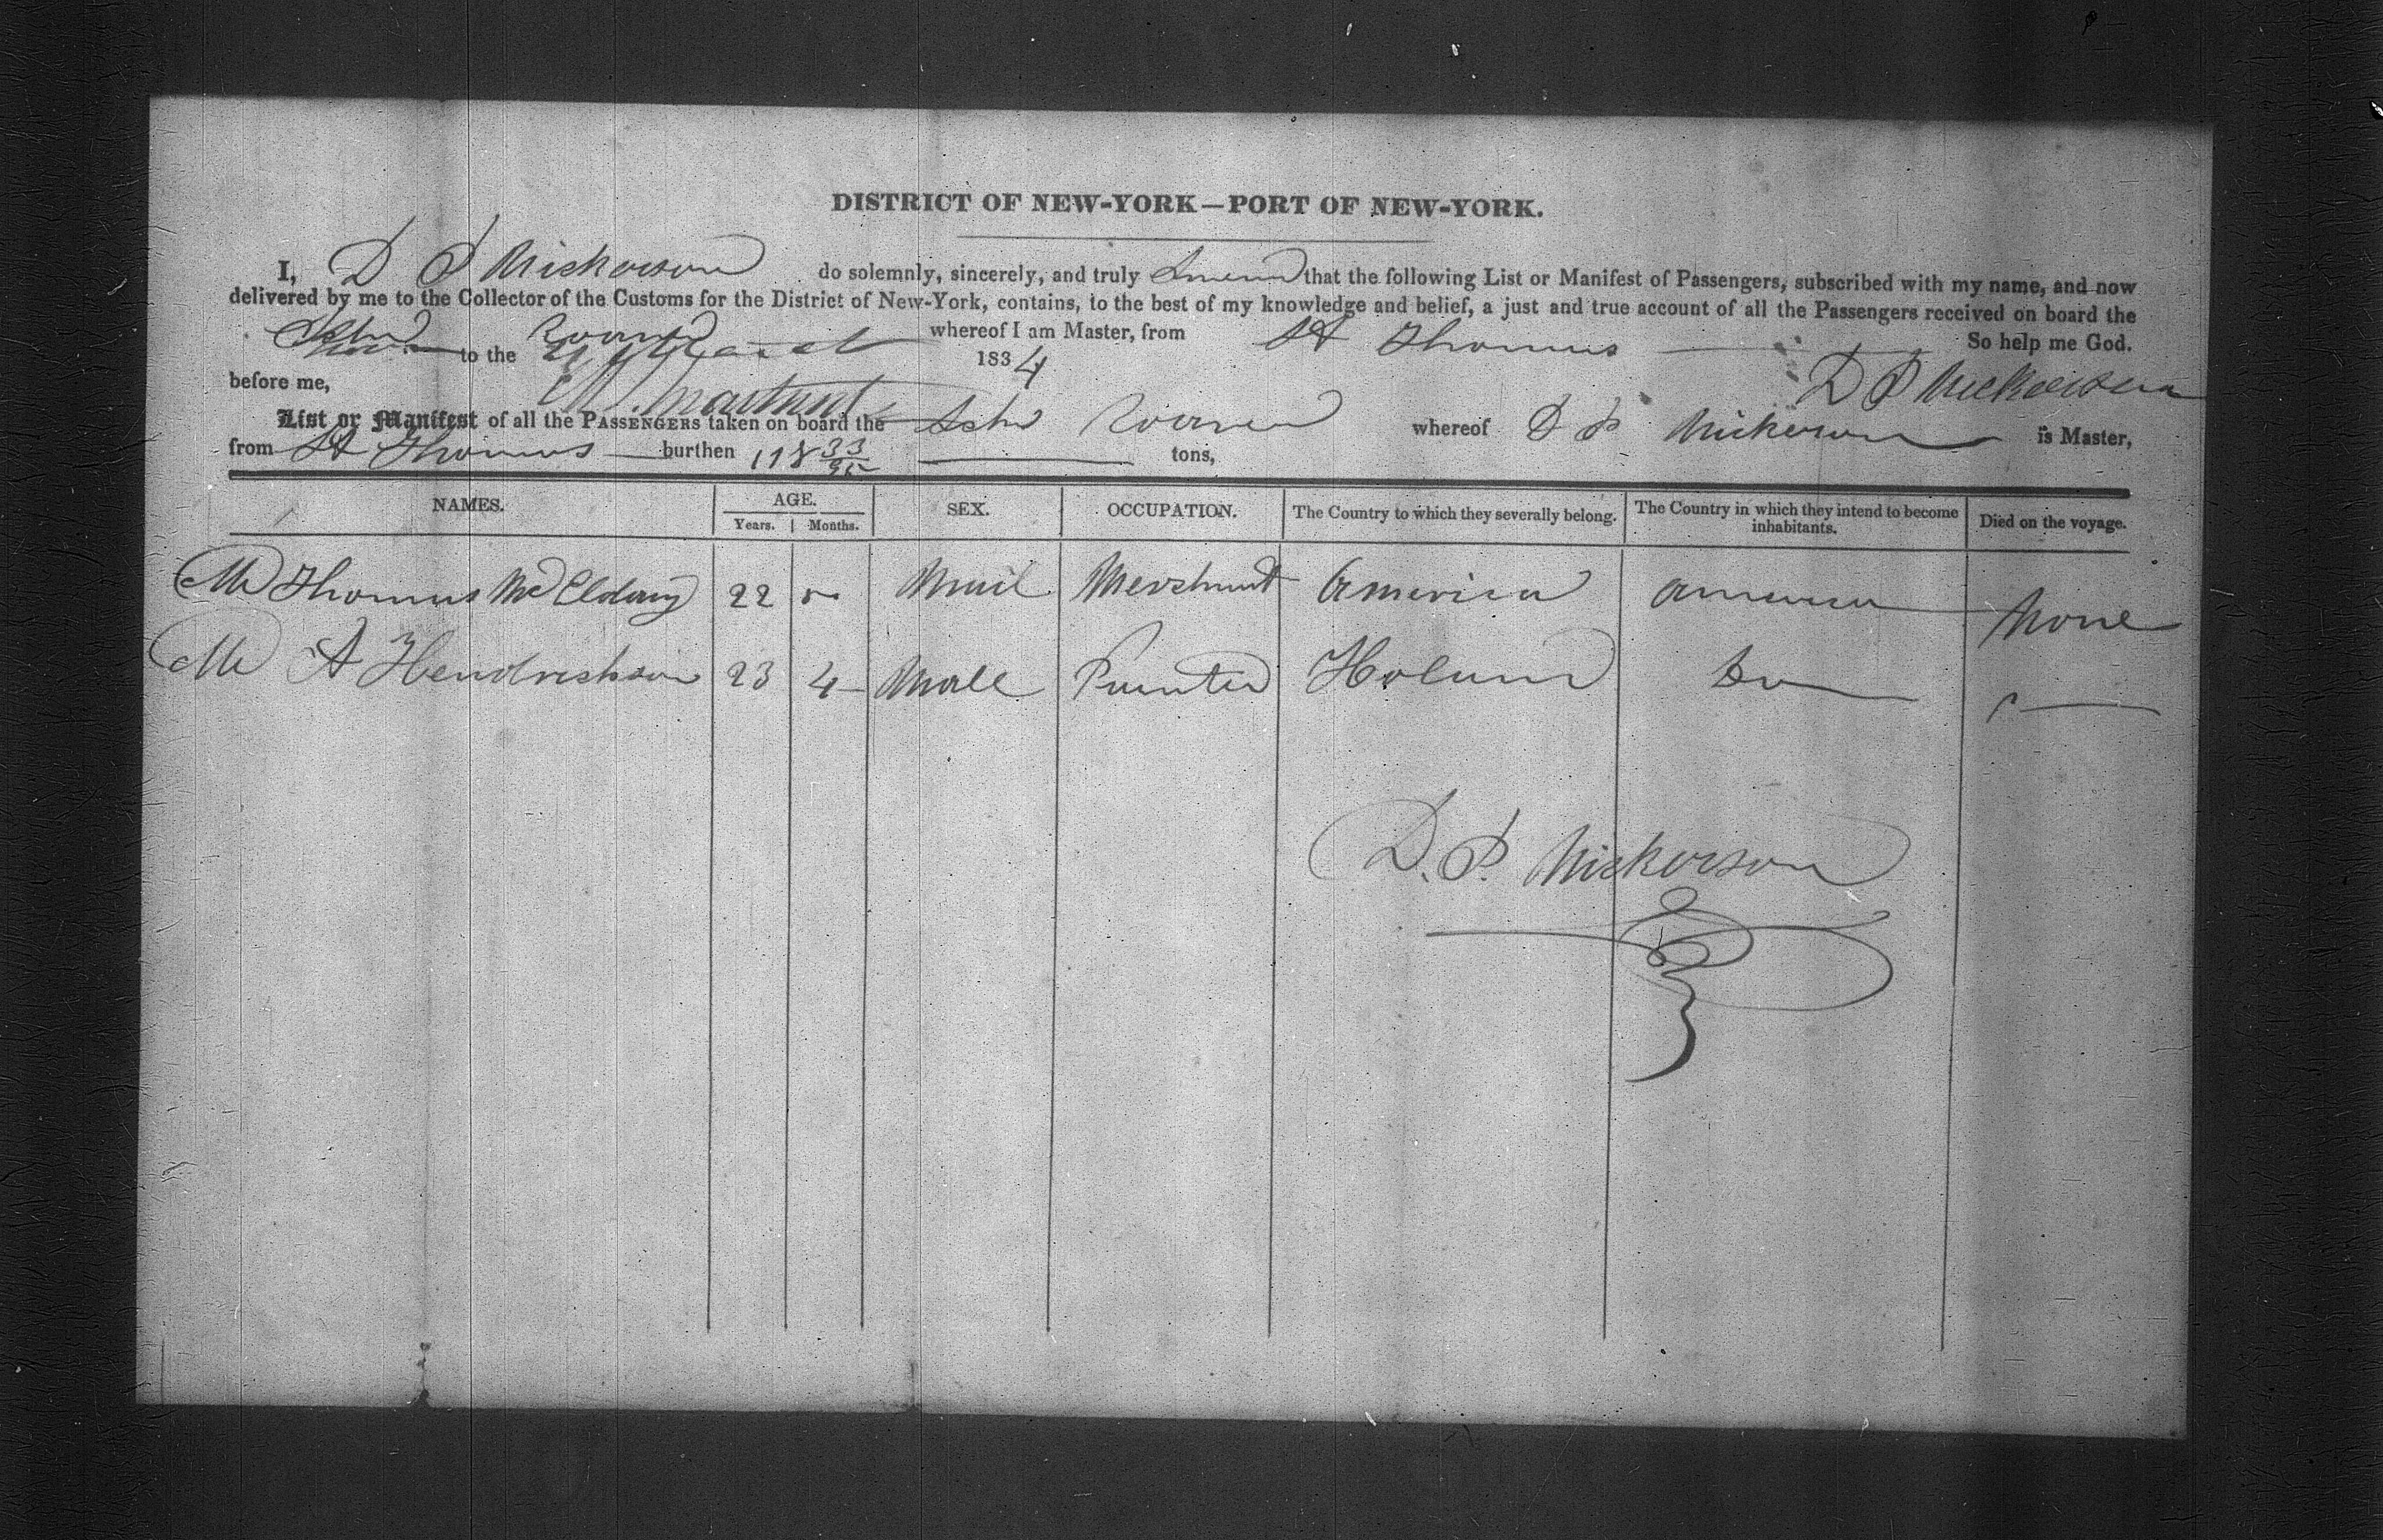 DISTRICT OF NEW-YORK—PORT OF NEW-YORK.
I, D P Nickerson do solemnly, sincerely, and truly that the following List or Manifest of Passengers, subscribed with my name, and now
delivered by me to the Collector of the Customs for the District of New-York, contains, to the best of my knowledge and belief, a just and true account of all the Passengers received on board the
Schr whereof I am Master, from St Thomas So help me God.
to the 1834
before me, D P Nickerson
List or Manifest of all the PASSENGERS taken on board the Schr whereof D P Nickerson is Master,
from St Thomas burthen 118 33/95 tons,
NAMES. AGE. SEX. OCCUPATION. The Country to which they severally belong. The Country in which they intend to become inhabitants. Died on the voyage.
Years. Months.
Mr Thomas 22 Mail Merchant America America None
Mr A Hendrickson 23 4 Male Holand Do
D. P. Nickerson